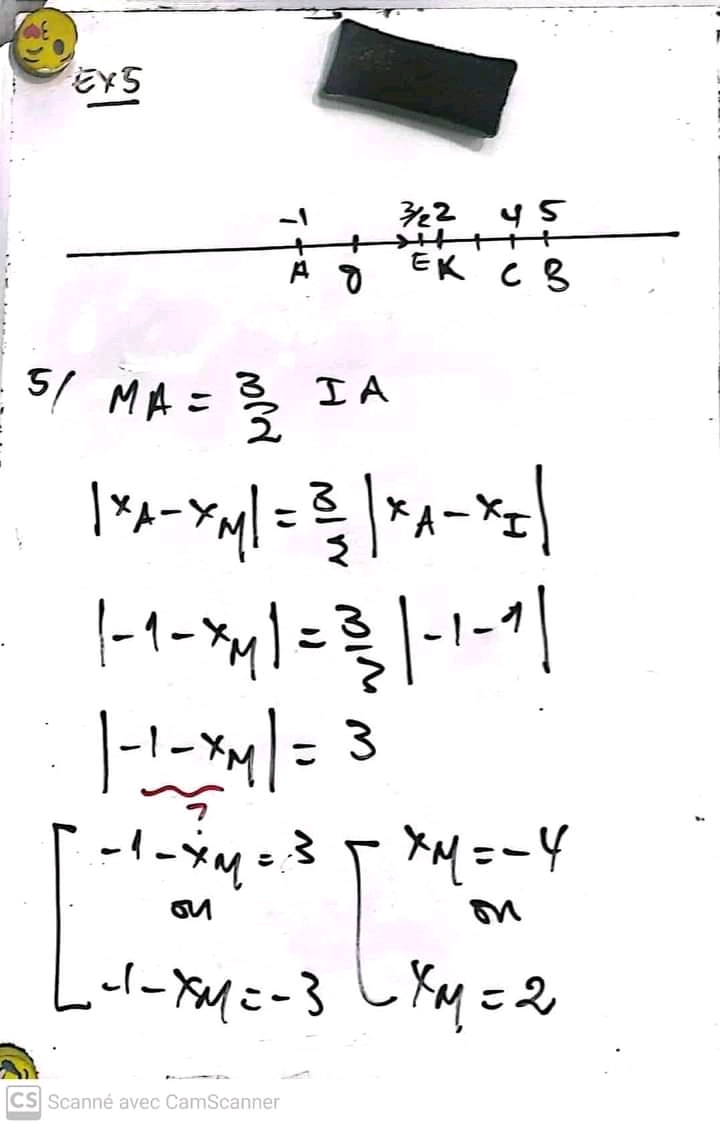 EX5
-1 3/2 2 4 5
A O E K C B
5/ MA = 3/2 IA
|xA - xM| = 3/2 |xA - xI|
|-1 - xM| = 3/2 |-1 - 1|
|-1 - xM| = 3
?
[ -1 - xM = 3 [ xM = -4
ou ou
-1 - xM = -3 xM = 2
CS Scanné avec CamScanner